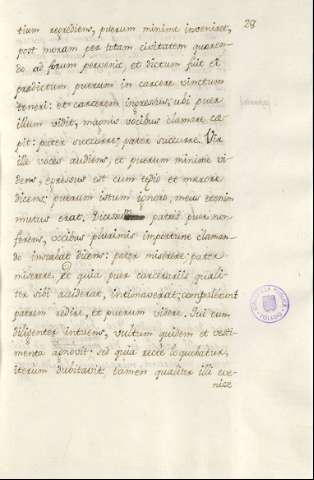 28
tium regrediens, puerum minime inveniret,
post moram per totam civitatem quaeren-
do ad forum pervenit, et dictum fuit ei
praedictum puerum in carcere vinctum
teneri: et carcerem ingressus, ubi puer
illum vidit, magnis vocibus clamare cæ-
pit: pater succurre, pater succurre. Vir
ille voces audiens, et puerum minime vi-
dens, egressus est cum tedio et mærore
dicens; puerum istum ignoro, meus etenim
mutus erat. Dicessum patris puer non
ferens, vocibus plurimis importune claman-
do instabat dicens: pater miserere, pater
miserere. Et quia puer carcerariis quali-
ter sibi acciderat, intimaverat; compulerunt
patrem redire, et puerum videre. Qui cum
diligenter intuens, vultum quidem et vesti-
menta agnovit: sed quia recte loquebatur,
iterum dubitavit: tamen qualiter illi eve-
nisse